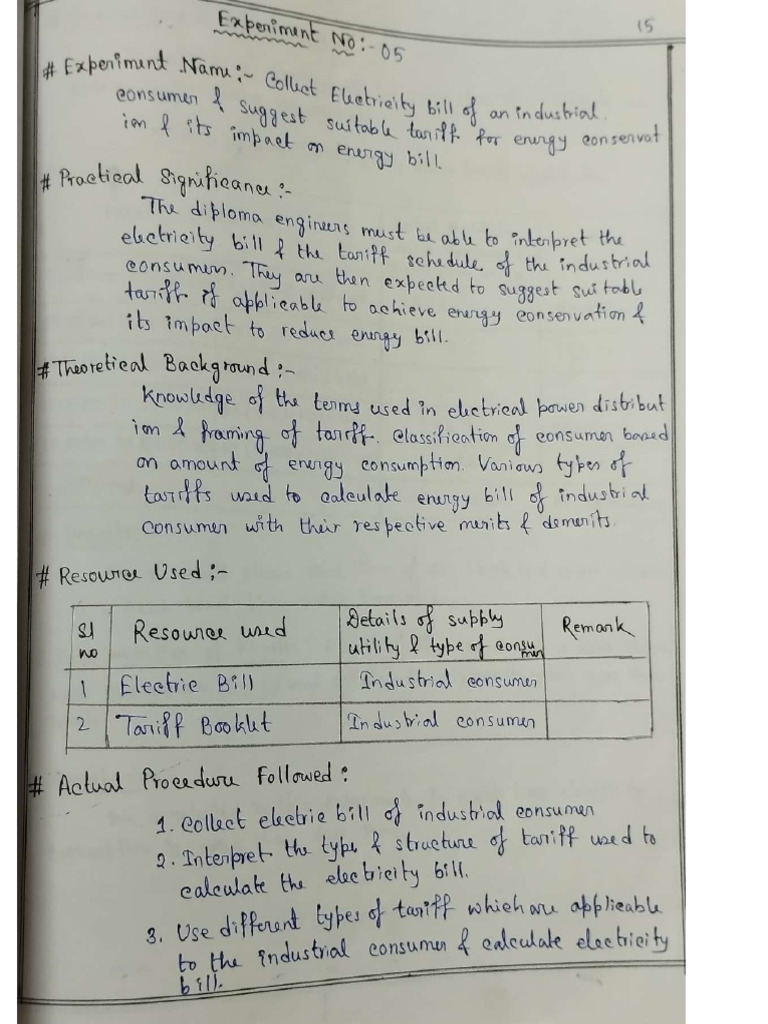 15
Experiment No:- 05
# Experiment Name:- Collect Electricity bill of an industrial
consumer & suggest suitable tariff for energy conservat
ion & its impact on energy bill.
# Practical Significance:-
The diploma engineers must be able to interpret the
electricity bill & the tariff schedule of the industrial
consumers. They are then expected to suggest suitable
tariff if applicable to achieve energy conservation &
its impact to reduce energy bill.
# Theoretical Background:-
Knowledge of the terms used in electrical power distribut
ion & framing of tariff. Classification of consumer based
on amount of energy consumption. Various types of
tariffs used to calculate energy bill of industrial
consumer with their respective merits & demerits.
# Resource Used:-
Sl no | Resource used | Details of supply utility & type of consumer | Remark
1 | Electric Bill | Industrial consumer
2 | Tariff Booklet | Industrial consumer
# Actual Procedure Followed:
1. Collect electric bill of industrial consumer
2. Interpret the type & structure of tariff used to
calculate the electricity bill.
3. Use different types of tariff which are applicable
to the industrial consumer & calculate electricity
bill.